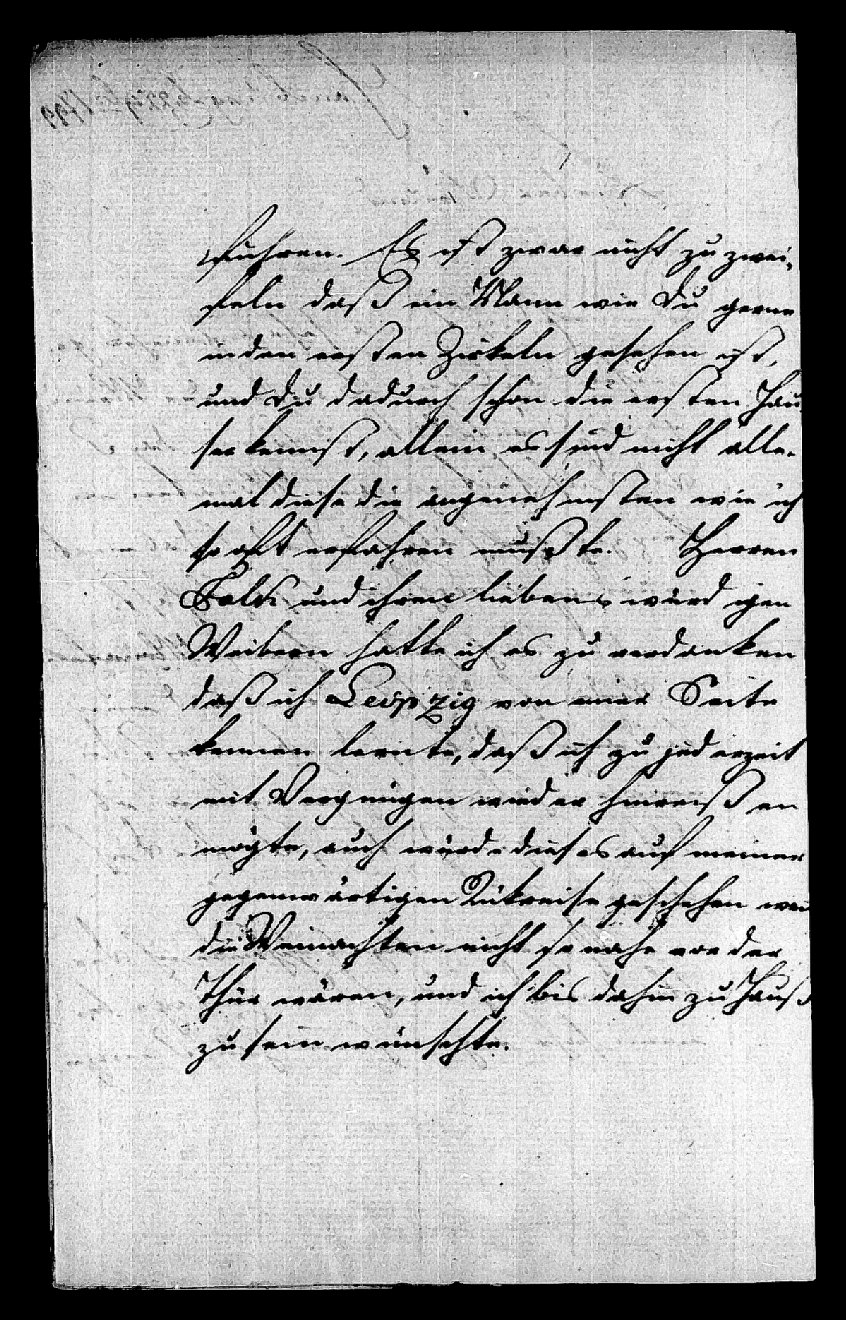 führen. Es ist zwar nicht zu zwei-
feln daß ein Mann wie Du gerne
in den ersten Zirkeln gesehen ist,
und Du dadurch schon die ersten Häu
ser kennst, allein es sind nicht alle-
mal diese die angenehmsten wie ich
so oft erfahren mußte. Herren
und ihren liebenswürdigen
Weibern hatte ich es zu verdanken
daß ich Leipzig von einer Seite
kennen lernte, daß ich zu jederzeit
mit Vergnügen wieder hinreißen
mögte, auch würde dieses auf meiner
gegenwärtigen Rükreise geschehen wen
die Weinachten nicht so nahe vor der
Thür wären, und ich bis dahin zu Hauß
zu sein wünschte.